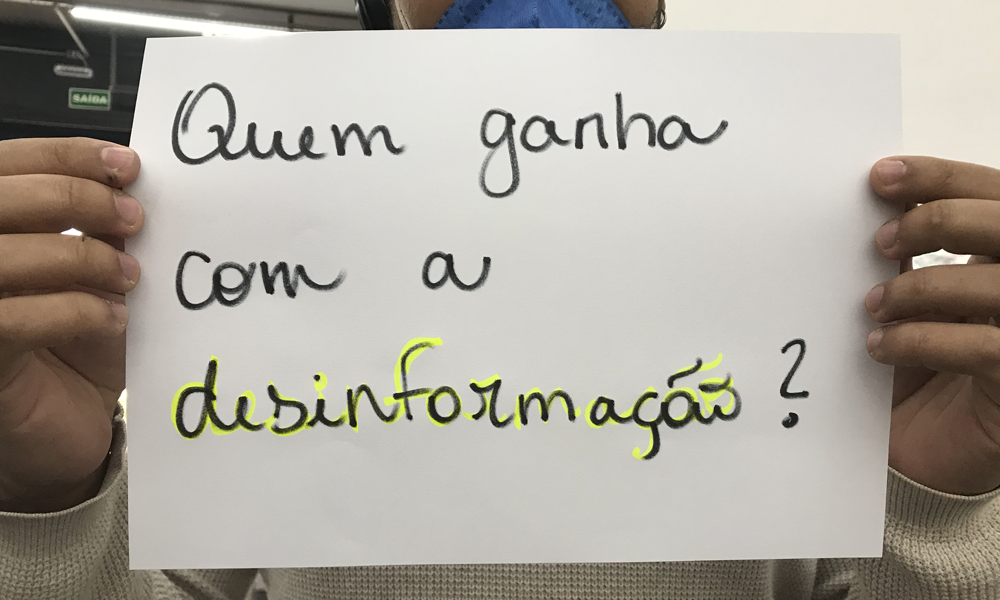 SAÍDA
Quem ganha
com a
desinformação?